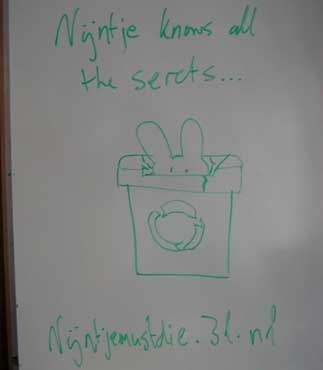 Nijntje knows all
the serets...
Nijntjemustdie.3l.nl